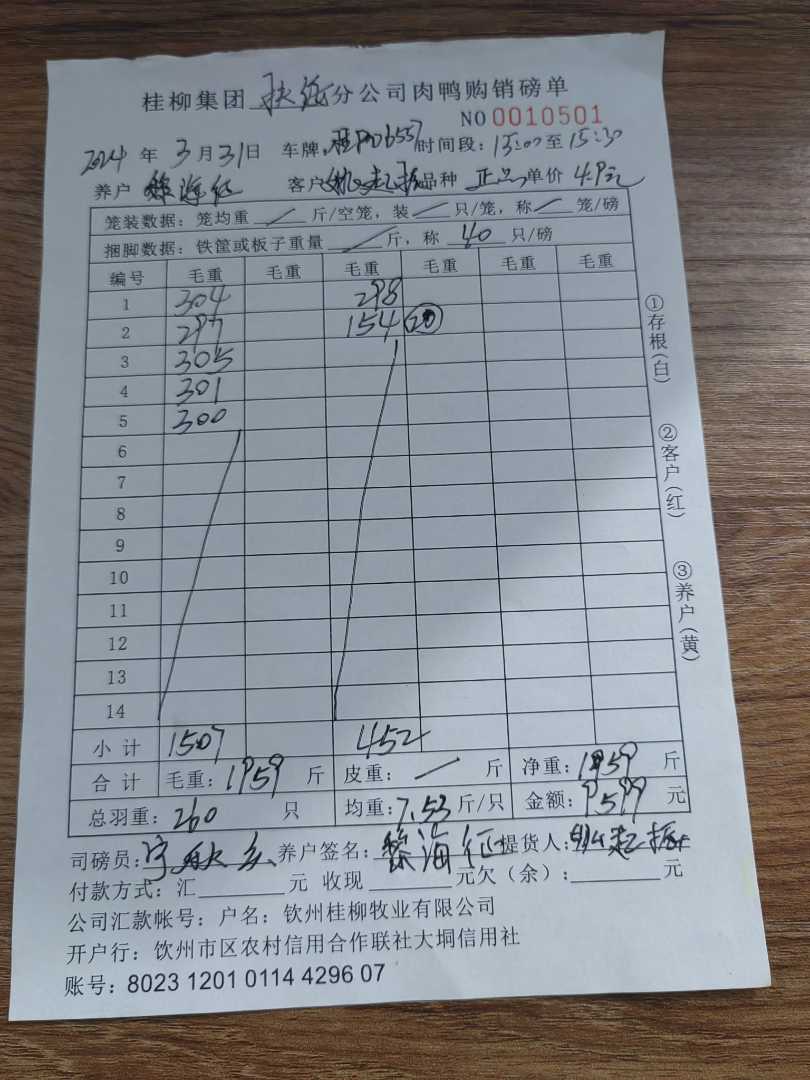 桂柳集团 扶绥 分公司肉鸭购销磅单
NO 0010501
2024 年 3 月 31 日 车牌: 时间段: 15:00 至 15:30
养户 客户 品种 正品 单价 4.9元
笼装数据: 笼均重 / 斤/空笼, 装 / 只/笼, 称 / 笼/磅
捆脚数据: 铁筐或板子重量 / 斤, 称 40 只/磅
编号 毛重 毛重 毛重 毛重 毛重 毛重
1 304 298
2 297 154 20
3 305
4 301
5 300
6
7
8
9
10
11
12
13
14
小计 1507 452
合计 毛重: 1959 斤 皮重: / 斤 净重: 1959 斤
总羽重: 260 只 均重: 7.53 斤/只 金额: 9599 元
司磅员: 养户签名: 提货人:
付款方式: 汇 元 收现 元欠(余): 元
公司汇款帐号: 户名: 钦州桂柳牧业有限公司
开户行: 钦州市区农村信用合作联社大垌信用社
账号: 8023 1201 0114 4296 07
①存根(白)
②客户(红)
③养户(黄)